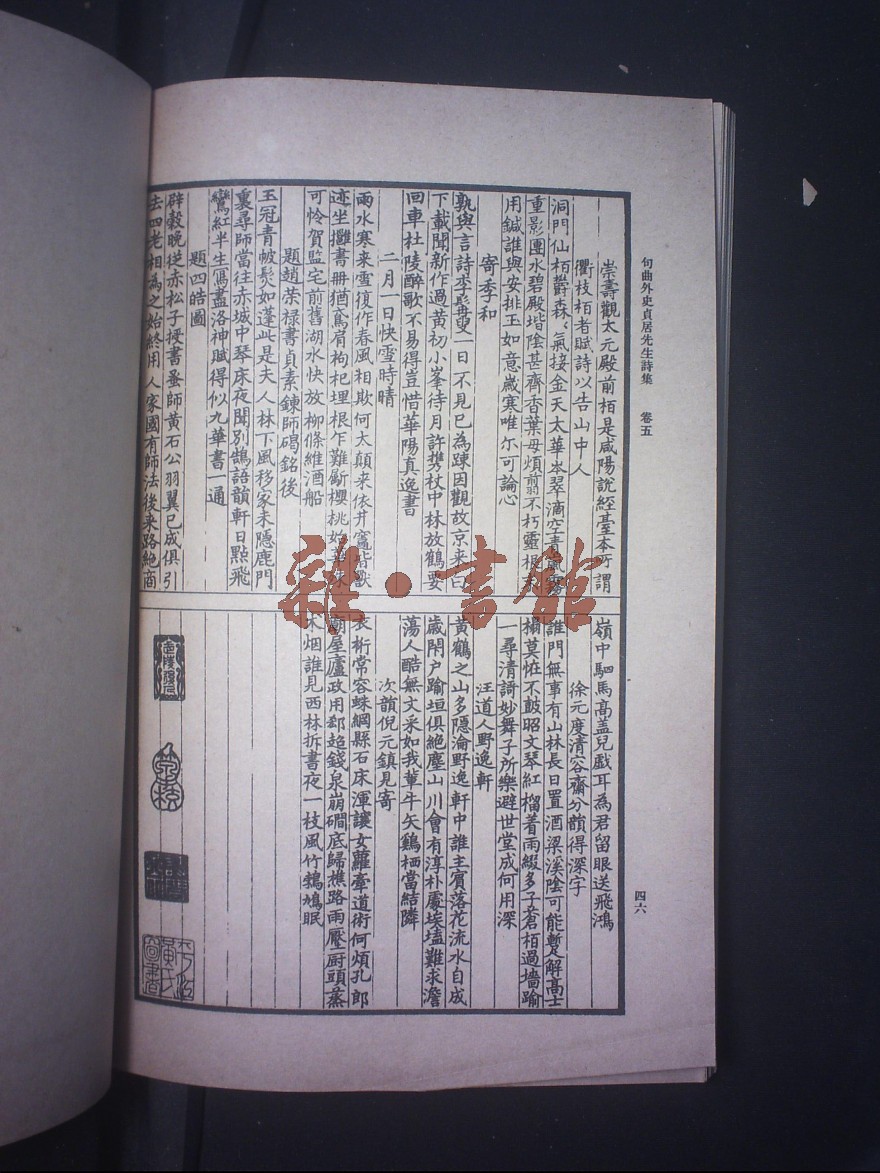 句曲外史貞居先生詩集 卷五
四六
崇壽觀太元殿前栢是咸陽說經臺本所謂
衢枝栢者賦詩以告山中人
洞門仙栢爵森〻氣接金天太華岑翠滴空青嵐霧
重影團水碧殿堦陰甚齊香葉毋煩翦不朽靈根
用鍼誰與安排玉如意歲寒唯尓可論心
寄季和
孰與言詩李髯雙一日不見已為踈因觀故京来白
下載聞新作過黄初小峯待月許携杖中林放鶴要
回車杜陵醉歌不易得豈惜華陽真逸書
二月一日快雪時晴
雨水寒来雪復作春風相欺何太顛来依井竈皆獸
迹坐攤書冊猶鳶肩枸杞埋根乍難斸櫻桃
可怜賀監宅前舊湖水快放柳條維酒船
題趙荣禄書貞素鍊師碣銘後
玉冠青帔鬂如蓬此是夫人林下風移家未隠鹿門
裏尋師當往赤城中琴床夜聞別鵠語韻軒日㸃飛
鸞紅半生寫盡洛神賦得似九華書一通
題四皓圖
辟糓晚逆赤松子授書蚤師黄石公羽翼已成俱引
去四老相為之始終用人家國有師法後来路絶商
嶺中駟馬高盖兒戲耳為君留眼送飛鴻
徐元度清容齋分韻得深字
誰門無事有山林長日置酒梁溪陰可能蹔解高士
榻莫恠不皷昭文琴紅榴着雨綴多子蒼栢過墻踰
一尋清謌妙舞子所樂避世堂成何用深
汪道人野逸軒
黄鶴之山多隠淪野逸軒中誰主賓落花流水自成
歲閉户踰垣俱絶塵山川會有淳朴處埃壒難求澹
蕩人酷無文采如我輩牛矢鷄栖當結隣
次韻倪元鎮見寄
衣桁常容蛛網縣石床渾讓女蘿牽道術何煩孔郎
廟屋廬政用郄超錢泉崩磵底歸樵路雨壓厨頭蒸
木烟誰見西林拆書夜一枝風竹鶉鳩眠
雜·書館